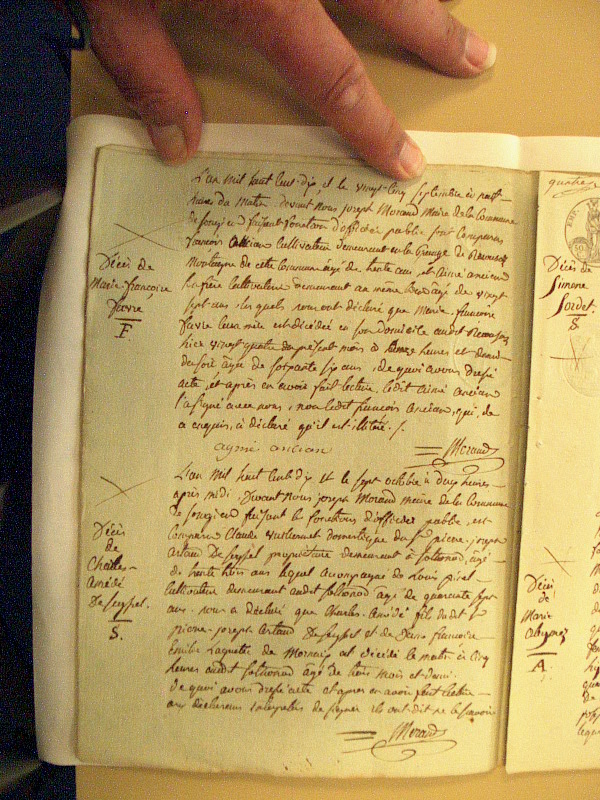 L'an mil huit cent dix, et le vingt cinq septembre à neuf
heures du matin devant nous joseph Morand Maire de la Commune
de songieu faisant fonction d'officier public sont Comparus
francois Ancian Cultivateur demeurant en la Grange de
Montagne de cette Commune âgé de trente ans, et aimé ancian
frère Cultivateur demeurant au même lieu âgé de vingt
sept ans, lesquels nous ont déclaré que Marie francoise
favre leur mère est décédée en son Domicile audit
hier vingt quatre du présent mois à heures et demi
du soir âgée de soixante six ans, de quoi avons dressé
acte, et après en avoir fait lecture ledit aimé ancian
l'a signé avec nous, non ledit francois ancian, qui, de
ce enquis, a déclaré qu'il est illitéré ./.
Décès de
Marie-françoise
favre
F
aymé ancian
Morand
L'an mil huit cent dix et le sept octobre à deux heures
après midi, Devant nous joseph Morand maire de la Commune
de songieu faisant les fonctions d'officier public, est
Comparu Claude domestique du Sr pierre joseph
artaud De seyssel propriétaire demeurant à sothonod, âgé
de trente trois ans lequel acompagné de Louis
Cultivateur demeurant audit sothonod âgé de quarente sept
ans, nous a déclaré que Charles-amédé fils dudit Sr
pierre-joseph artaud De seyssel et de Dame francoise
Emilie de Mornay est décédé le matin à cinq
heures audit sothonod âgé de trois mois et demi
de quoi avons dressé acte et après en avoir fait lecture
aux déclarans interpellés de signer ils ont dit ne le savoir
Décès
de
Charles-
Amédé
De seyssel.
S.
Morand
Décès de
Simone
Sordet.
S.
Décès
de
Marie
A.